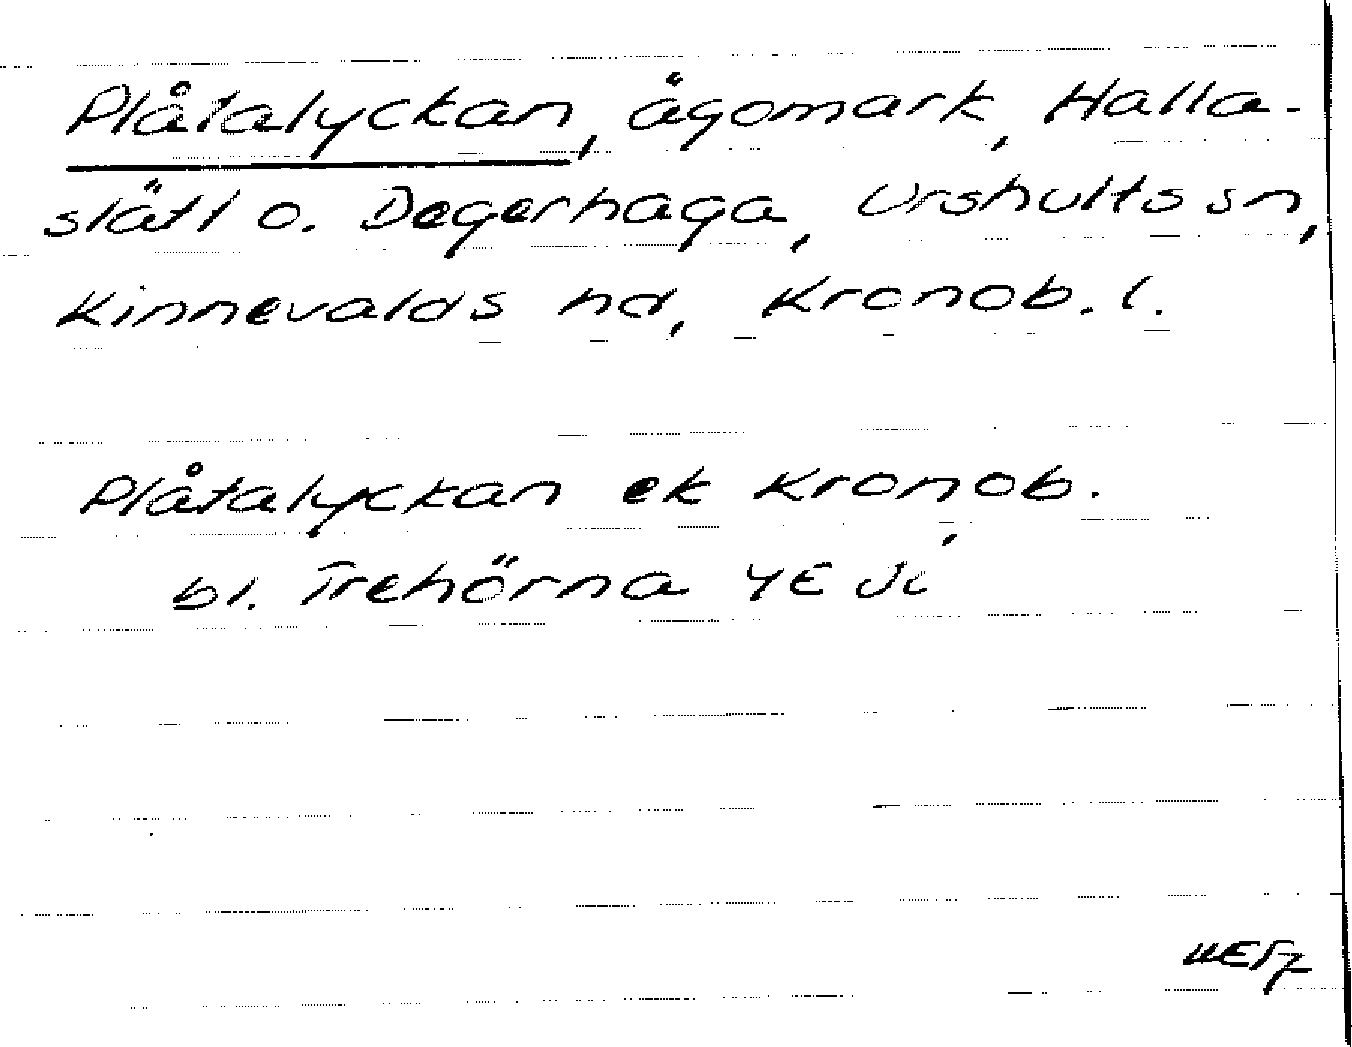 Plåtalyckan, ägomark, Halla-
slätt o. Degerhaga, Urshults sn,
Kinnevalds hd, Kronob. l.
Plåtalyckan ek Kronob.
bl. Trehörna 4E